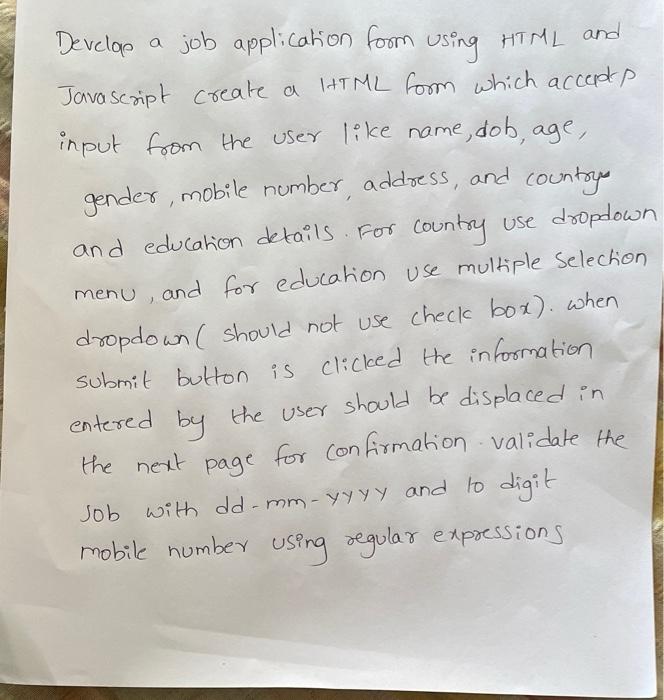 Develop a job application form using HTML and
Javascript create a HTML form which accept
input from the user like name, dob, age,
gender, mobile number, address, and country
and education details. For country use dropdown
menu, and for education use multiple selection
dropdown ( should not use check box). when
submit button is clicked the information
entered by the user should be displaced in
the next page for confirmation. validate the
Job with dd-mm-yyyy and 10 digit
mobile number using regular expressions